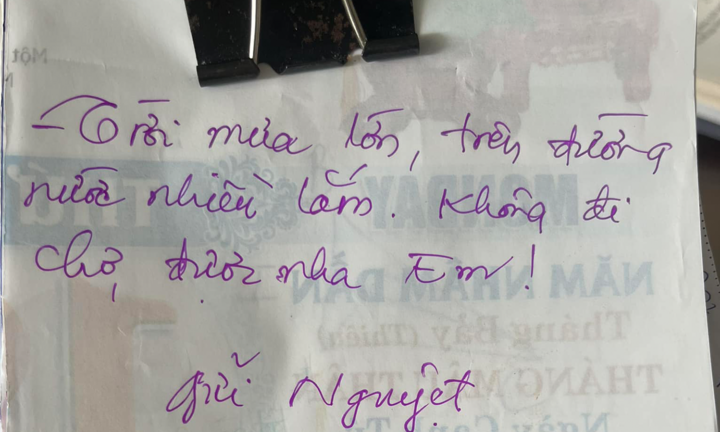 - Trời mưa lớn, trên đường
nước nhiều lắm. Không đi
chợ được nha Em!
Gửi Nguyệt
Một
MONDAY
THỨ
NĂM NHÂM DẦN
Tháng Bảy (Thiếu)
THÁNG MẬU THÂN
Ngày Canh